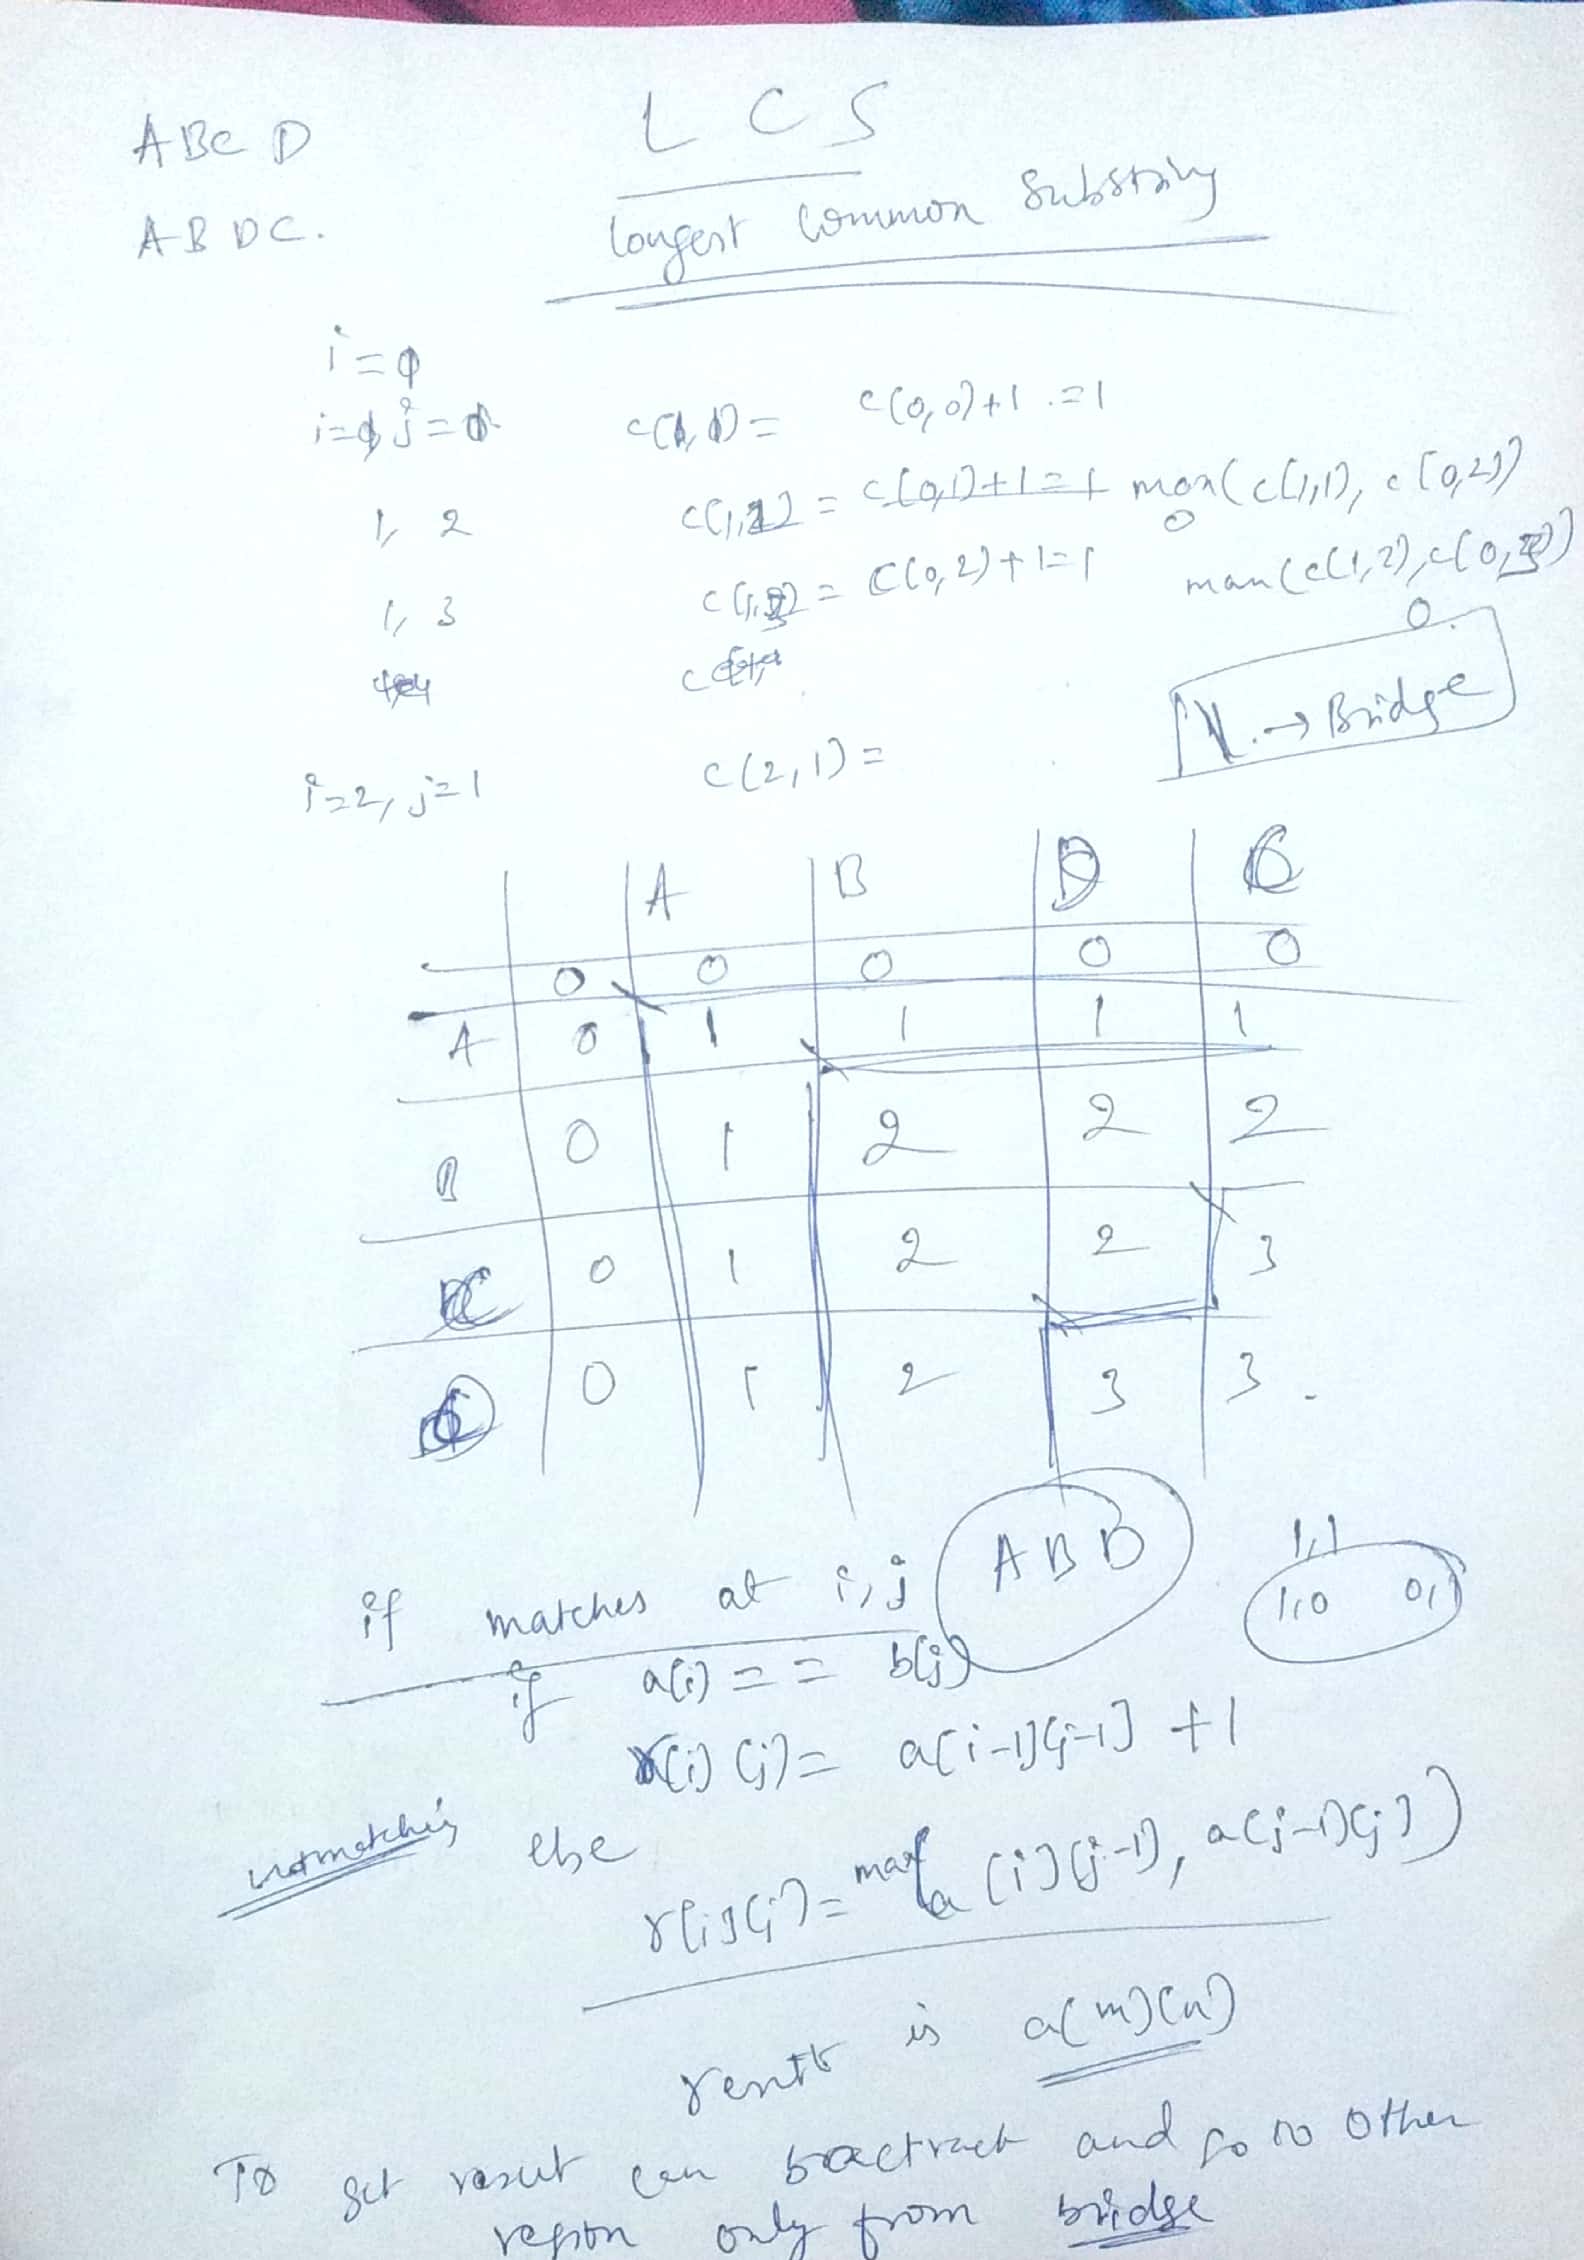 L C S
ABC D
Longest Common Substring
A B D C.
i=0
i=0, j=0 c(1,1)= c(0,0)+1 =1
1, 2 c(1,2) = c(0,1)+1=1 max(c(1,1), c(0,2))
0
1, 3 c(1,3) = c(0,2)+1=1 max(c(1,2), c(0,3))
0.
\ → Bridge
i=2, j=1 c(2,1)=
A B D C
0 0 0 0 0
A 0 1 1 1 1
B 0 1 2 2 2
C 0 1 2 2 3
0 1 2 3 3.
A B D
1,1
if matches at i,j
1,0 0,1
if a[i] == b[j]
r[i][j]= a[i-1][j-1] +1
notmatching else
r[i][j]= max(a[i][j-1], a[j-1][j])
result is a[m][n]
To get result can bactrack and go to other
region only from bridge